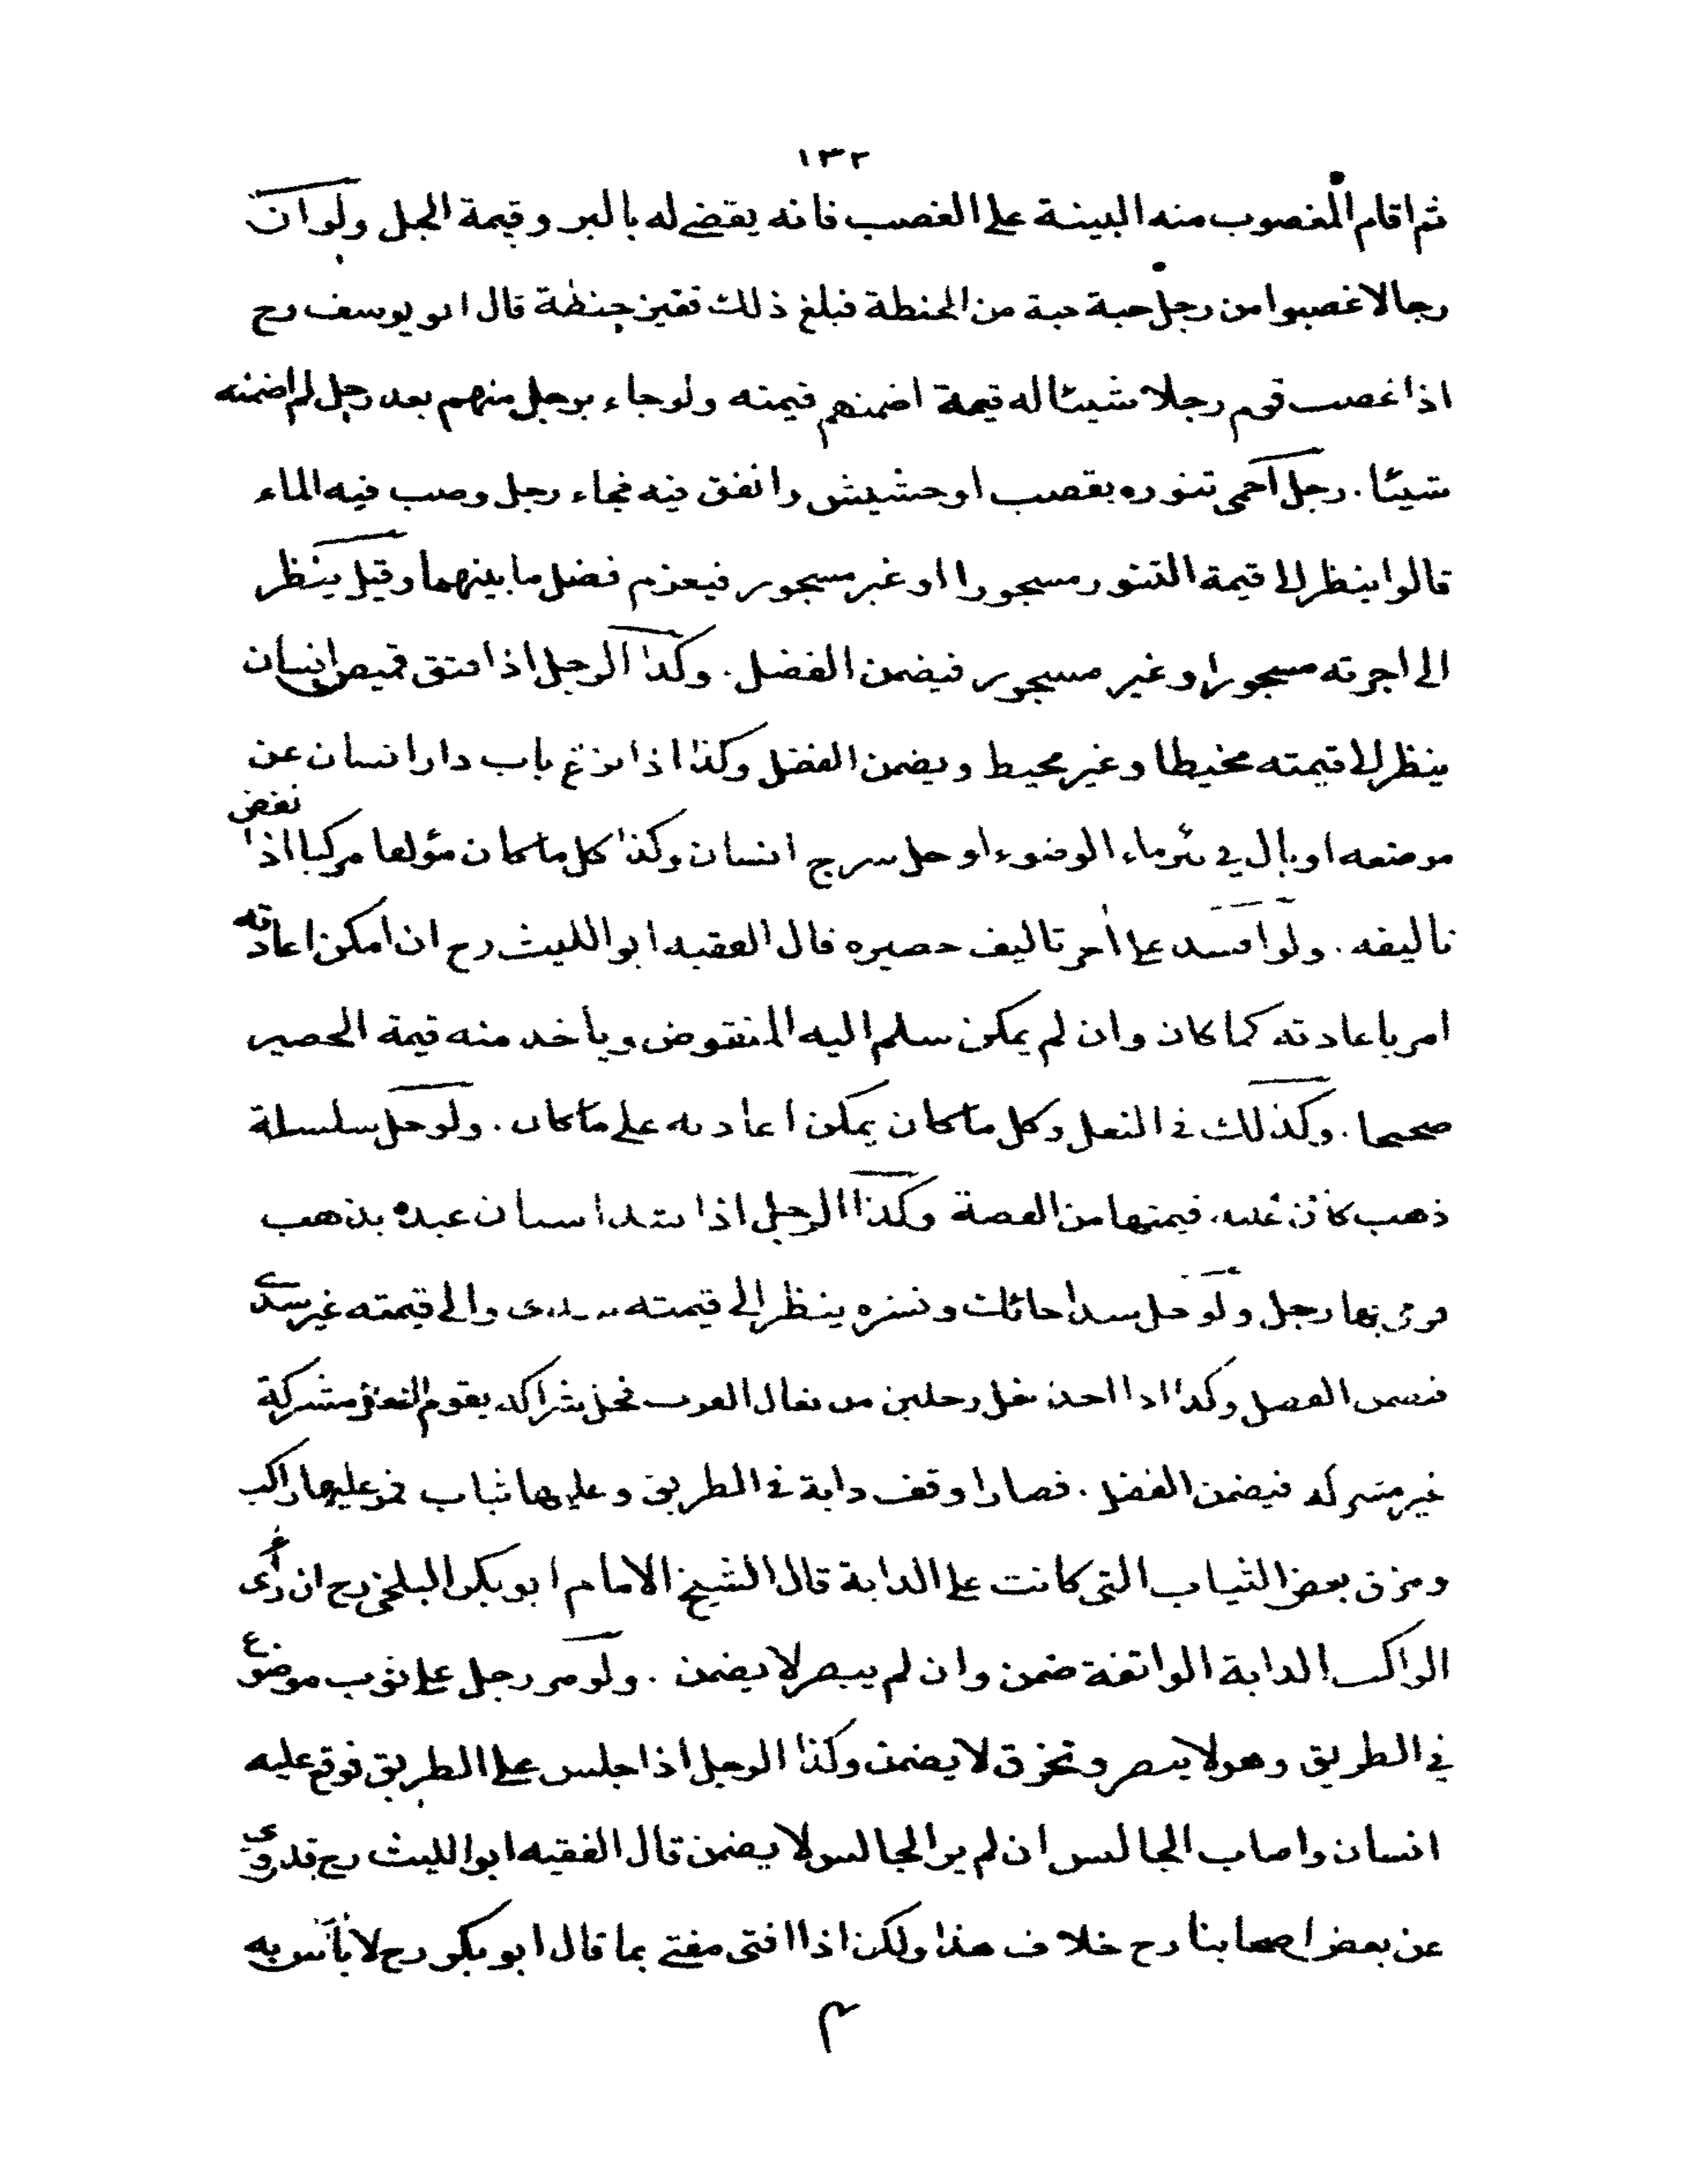 ١٣٢
ثم اقام المغصوب منه البينة على الغصب فانه يقضے له بالبر و قيمة الجل ولو ان
رجالا غصبوا من رجل حبة حبة من الحنطة فبلغ ذلك قفيز حنطة قال ابو يوسف رح
اذا غصب قوم رجلا شيئا له قيمة اضمنهم قيمته ولو جاء برجل منهم بعد رجل لم اضمنه
شيئا . رجل احمى تنوره بقصب او حشيش وانفق فيه فجاء رجل وصب فيه الماء
قالوا ينظر الى قيمة التنور مسجورا او غير مسجور فيغرم فضل ما بينهما وقيل ينظر
الى اجرته مسجورا وغير مسجور فيضمن الفضل . وكذا الرجل اذا فتق قميص انسان
ينظر الى قيمته مخيطا وغير مخيط ويضمن الفضل وكذا اذا نزع باب دار انسان عن
موضعه او بال في بئر ماء الوضوء او حل سرج انسان وكذا كل ما كان مؤلفا مركبا اذا نقض
تاليفه . ولو افسد على اخر تاليف حصيره قال الفقيه ابو الليث رح ان امكن اعادته
امر باعادته كما كان وان لم يمكن سلم اليه المنقوض وياخذ منه قيمة الحصير
صحيحا . وكذلك في النعل وكل ما كان يمكن اعادته على ما كان . ولو حل سلسلة
ذهب كان عليه قيمتها من الفضة وكذا الرجل اذا شد اسنان عبده بذهب
فرمى بها رجل ولو حل سدا حائك ونشره ينظر الى قيمته والى قيمته غير سدى
فيضمن الفضل وكذا اذا اخذ نعل رجل من نعال العرب فحل شراكه يقوم النعل مشركة
غير مشركة فيضمن الفضل . قصار اوقف دابة في الطريق وعليها ثياب فمر عليها راكب
ومزق بعض الثياب التي كانت على الدابة قال الشيخ الامام ابو بكر البلخى رح ان رأى
الراكب الدابة الواقفة ضمن وان لم يبصر لا يضمن . ولو مر رجل على ثوب موضوع
في الطريق وهو لا يبصر وتخرق لا يضمن وكذا الرجل اذا جلس على الطريق فوقع عليه
انسان واصاب الجالس ان لم ير الجالس لا يضمن قال الفقيه ابو الليث رح قد روى
عن بعض اصحابنا رح خلاف هذا ولكن اذا افتى مفتے بما قال ابو بكر رح لا بأس به